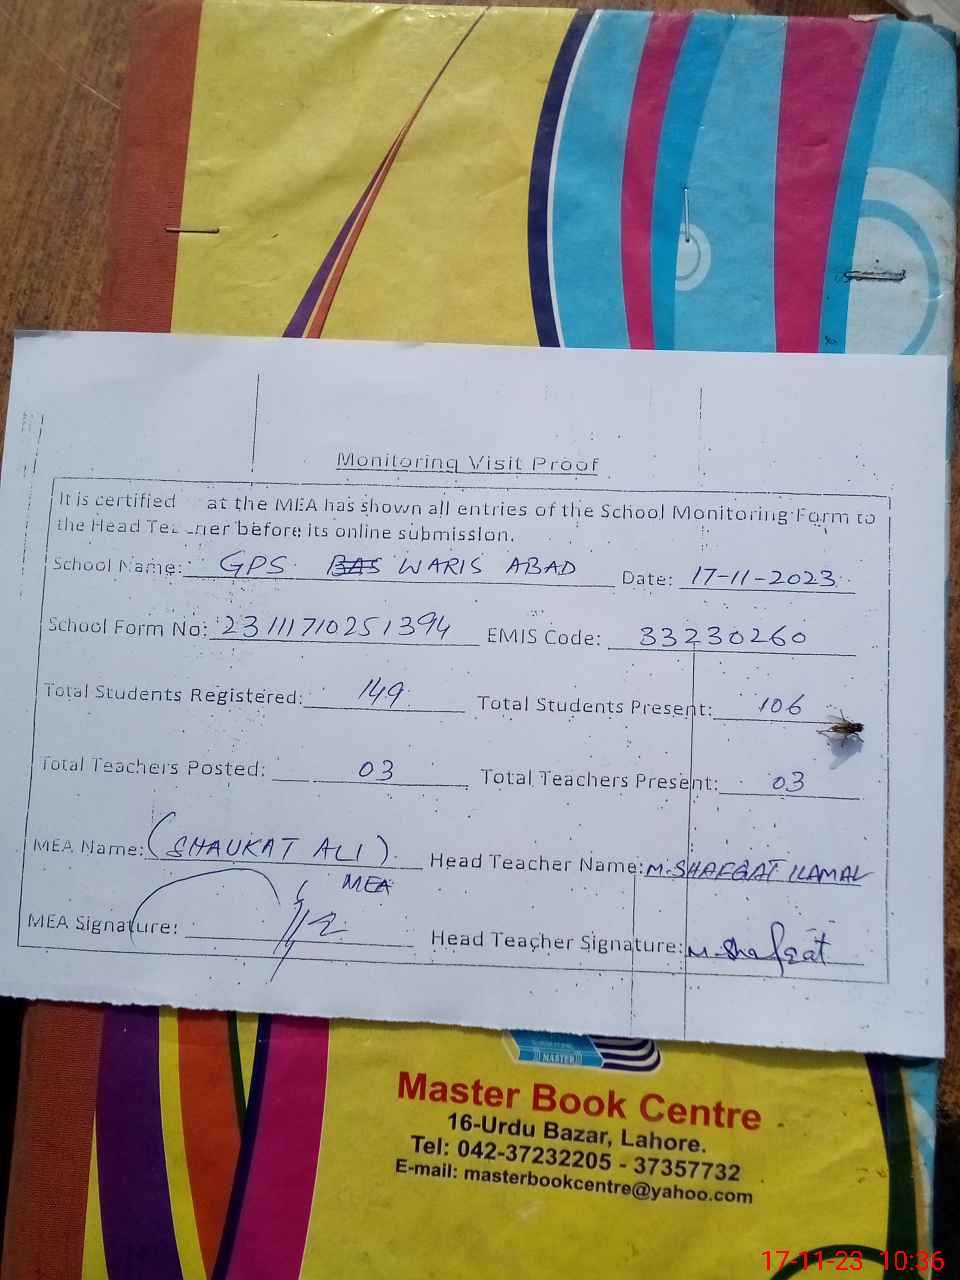 Monitoring Visit Proof
It is certified at the MEA has shown all entries of the School Monitoring Form to
the Head Teacher before its online submission.
School Name: GPS WARIS ABAD Date: 17-11-2023
School Form No: 231117102513 94 EMIS Code: 33230260
Total Students Registered: 149 Total Students Present: 106
Total Teachers Posted: 03 Total Teachers Present: 03
MEA Name: (SHAUKAT ALI) Head Teacher Name: M. SHAFQAT KAMAL
MEA
MEA Signature: Head Teacher Signature: M. Shafqat
MASTER
Master Book Centre
16-Urdu Bazar, Lahore.
Tel: 042-37232205 - 37357732
E-mail: masterbookcentre@yahoo.com
17-11-23 10:36